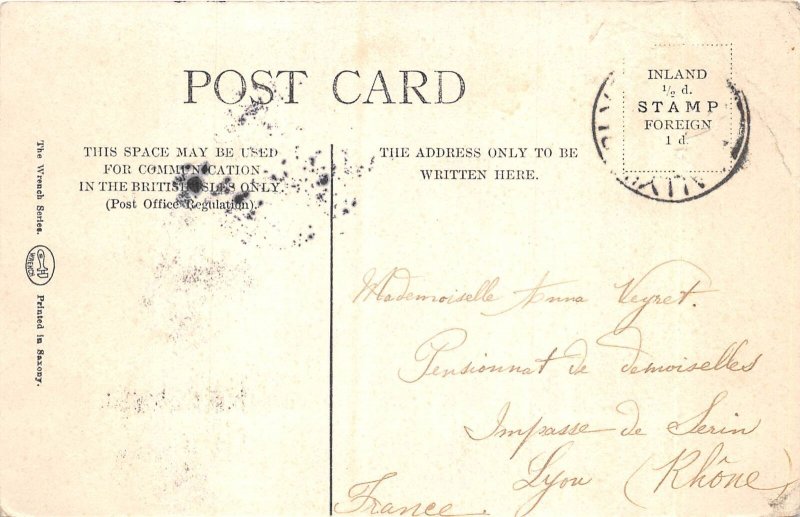 POST CARD
THIS SPACE MAY BE USED
FOR COMMUNICATION
IN THE BRITISH ISLES ONLY.
(Post Office Regulation).
THE ADDRESS ONLY TO BE
WRITTEN HERE.
INLAND
½ d.
STAMP
FOREIGN
1 d.
The Wrench Series.
WRENCH
Printed in Saxony.
Mademoiselle Anna Veyret.
Pensionnat de demoiselles
Impasse de Serin
Lyon (Rhône)
France.